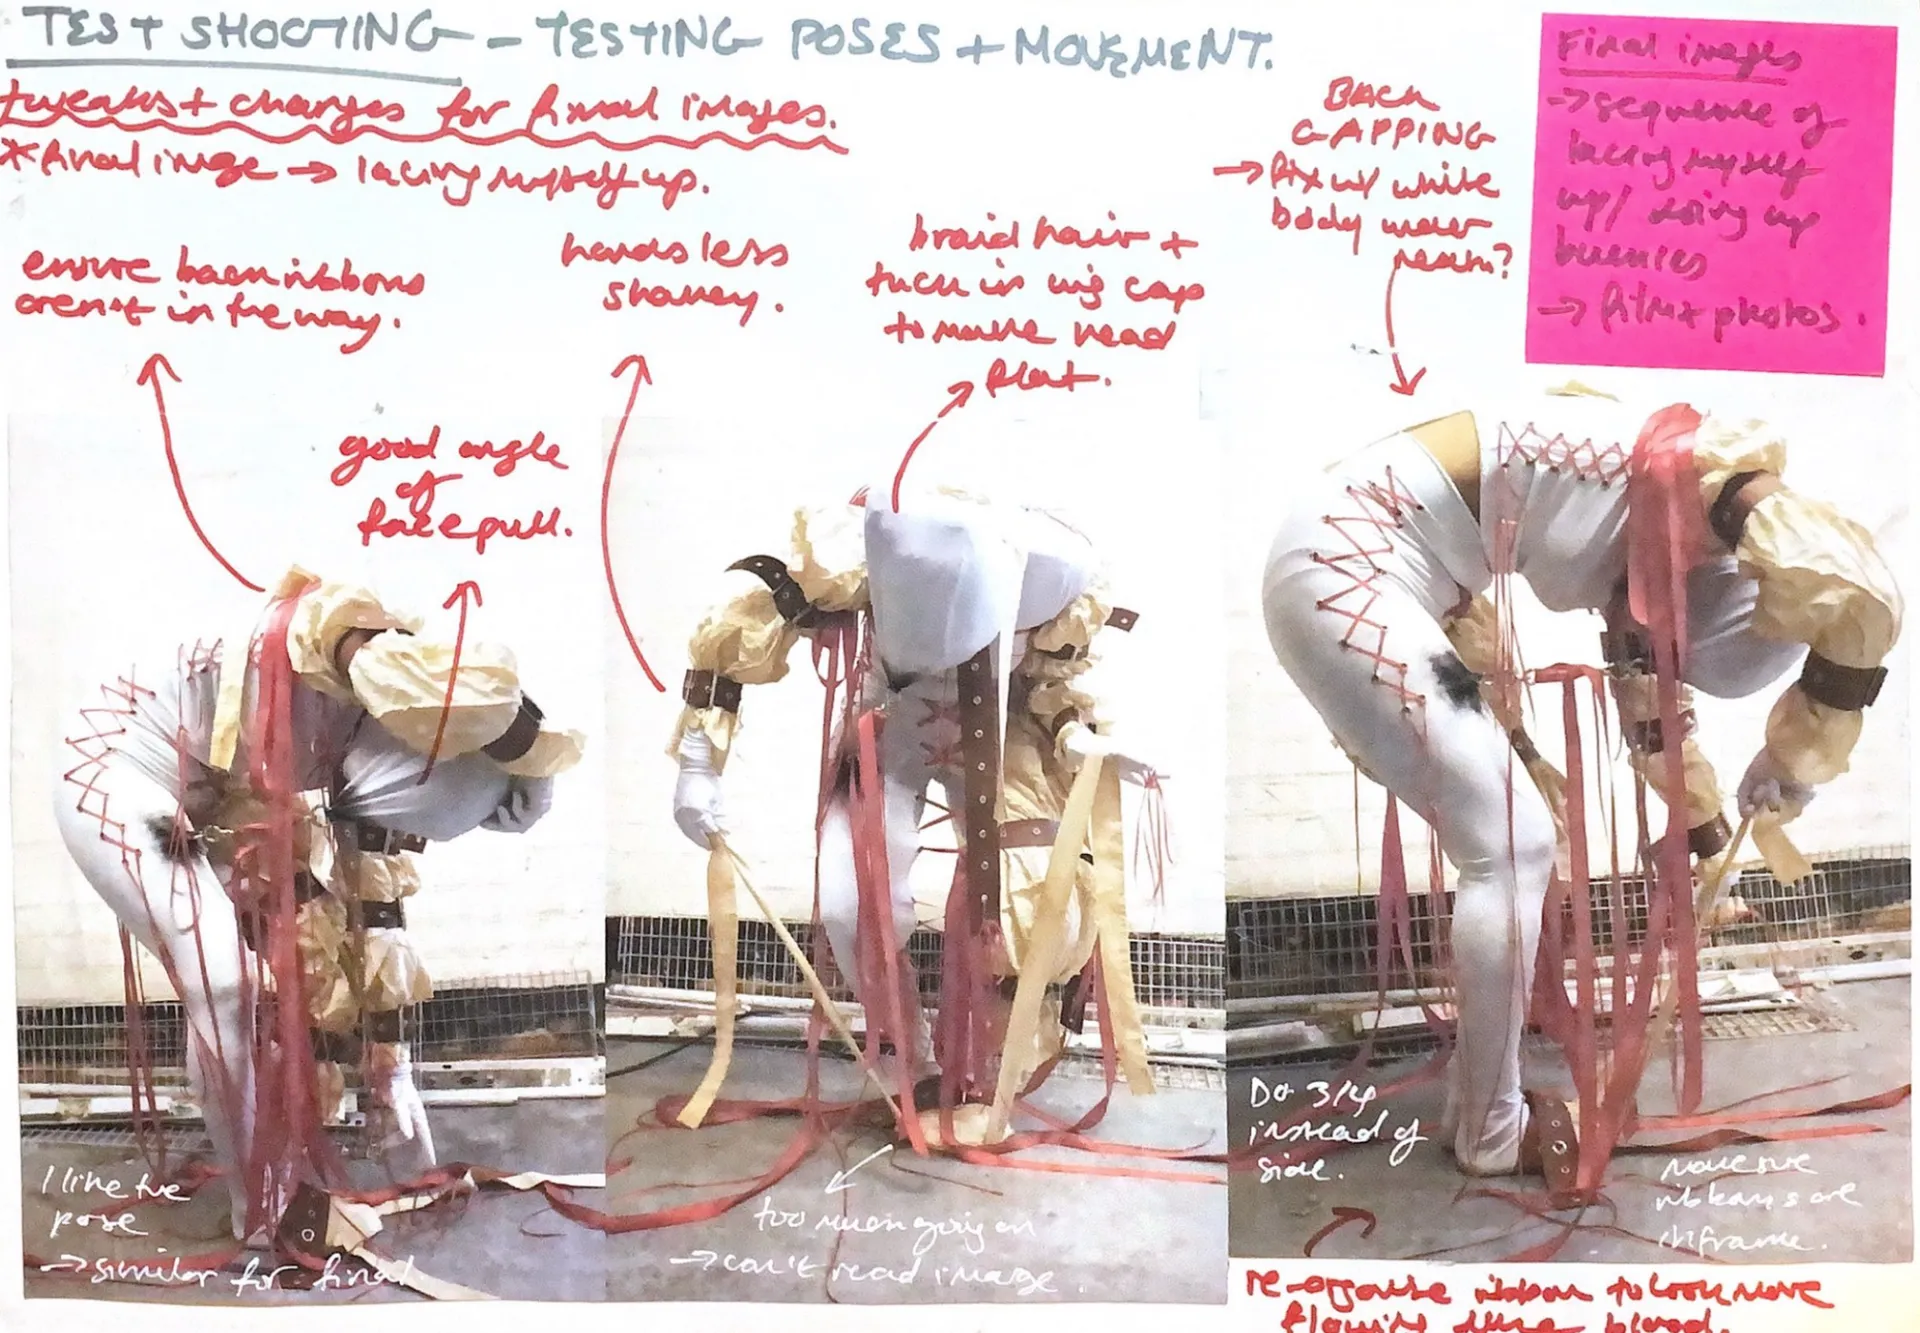 TEST SHOOTING - TESTING POSES + MOVEMENT.
tweaks + changes for final images.
* final image → lacing myself up.
ensure back ribbons
aren't in the way.
good angle
of
face pull.
hands less
shakey.
braid hair +
tuck in wig cap
to make head
flat.
BACK
GAPPING
→ fix w/ white
body under
neath?
Final images
→ sequence of
lacing myself
up/ doing up
buckles
→ film photos.
I like the
pose
→ similar for final.
too much going on
→ can't read image.
Do 3/4
instead of
side.
make sure
ribbons are
in frame.
re-organise ribbon to look more
flowing like blood.